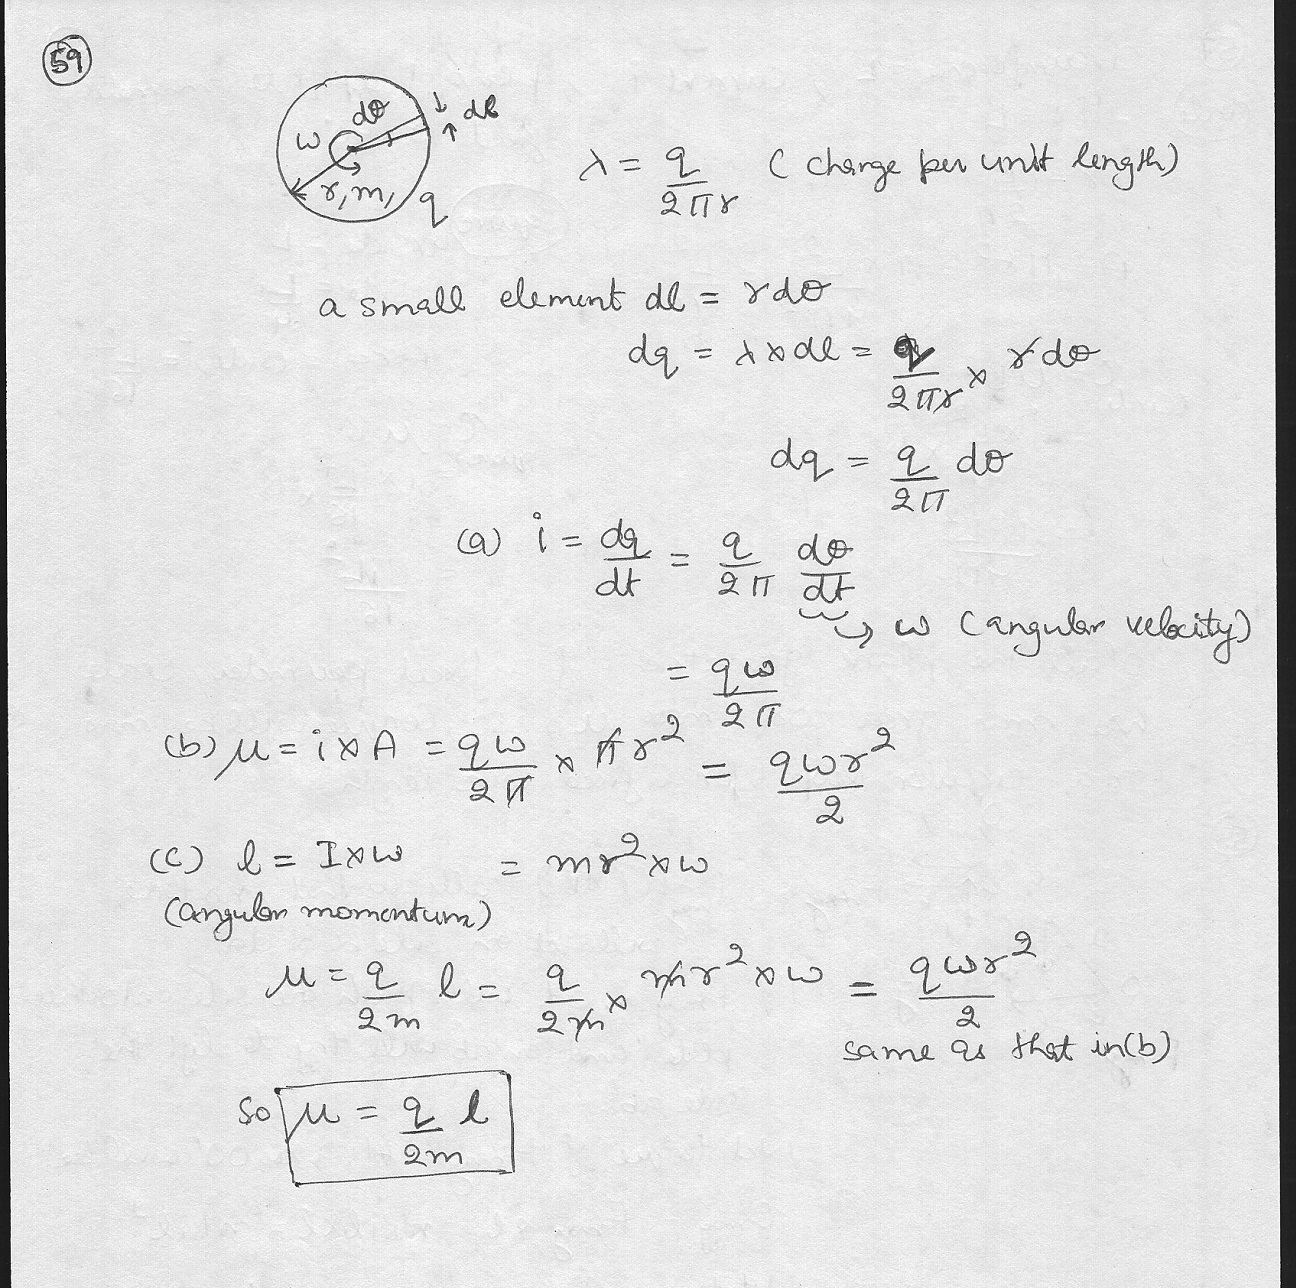 59
dθ dl
ω
r, m, q
λ = q/2πr (charge per unit length)
a small element dl = rdθ
dq = λ × dl = q/2πr × rdθ
dq = q/2π dθ
(a) i = dq/dt = q/2π dθ/dt
→ ω (angular velocity)
= qω/2π
(b) μ = i × A = qω/2π × πr² = qωr²/2
(c) l = I × ω = mr² × ω
(angular momentum)
μ = q/2m l = q/2m × mr² × ω = qωr²/2
same as that in (b)
so μ = q/2m l